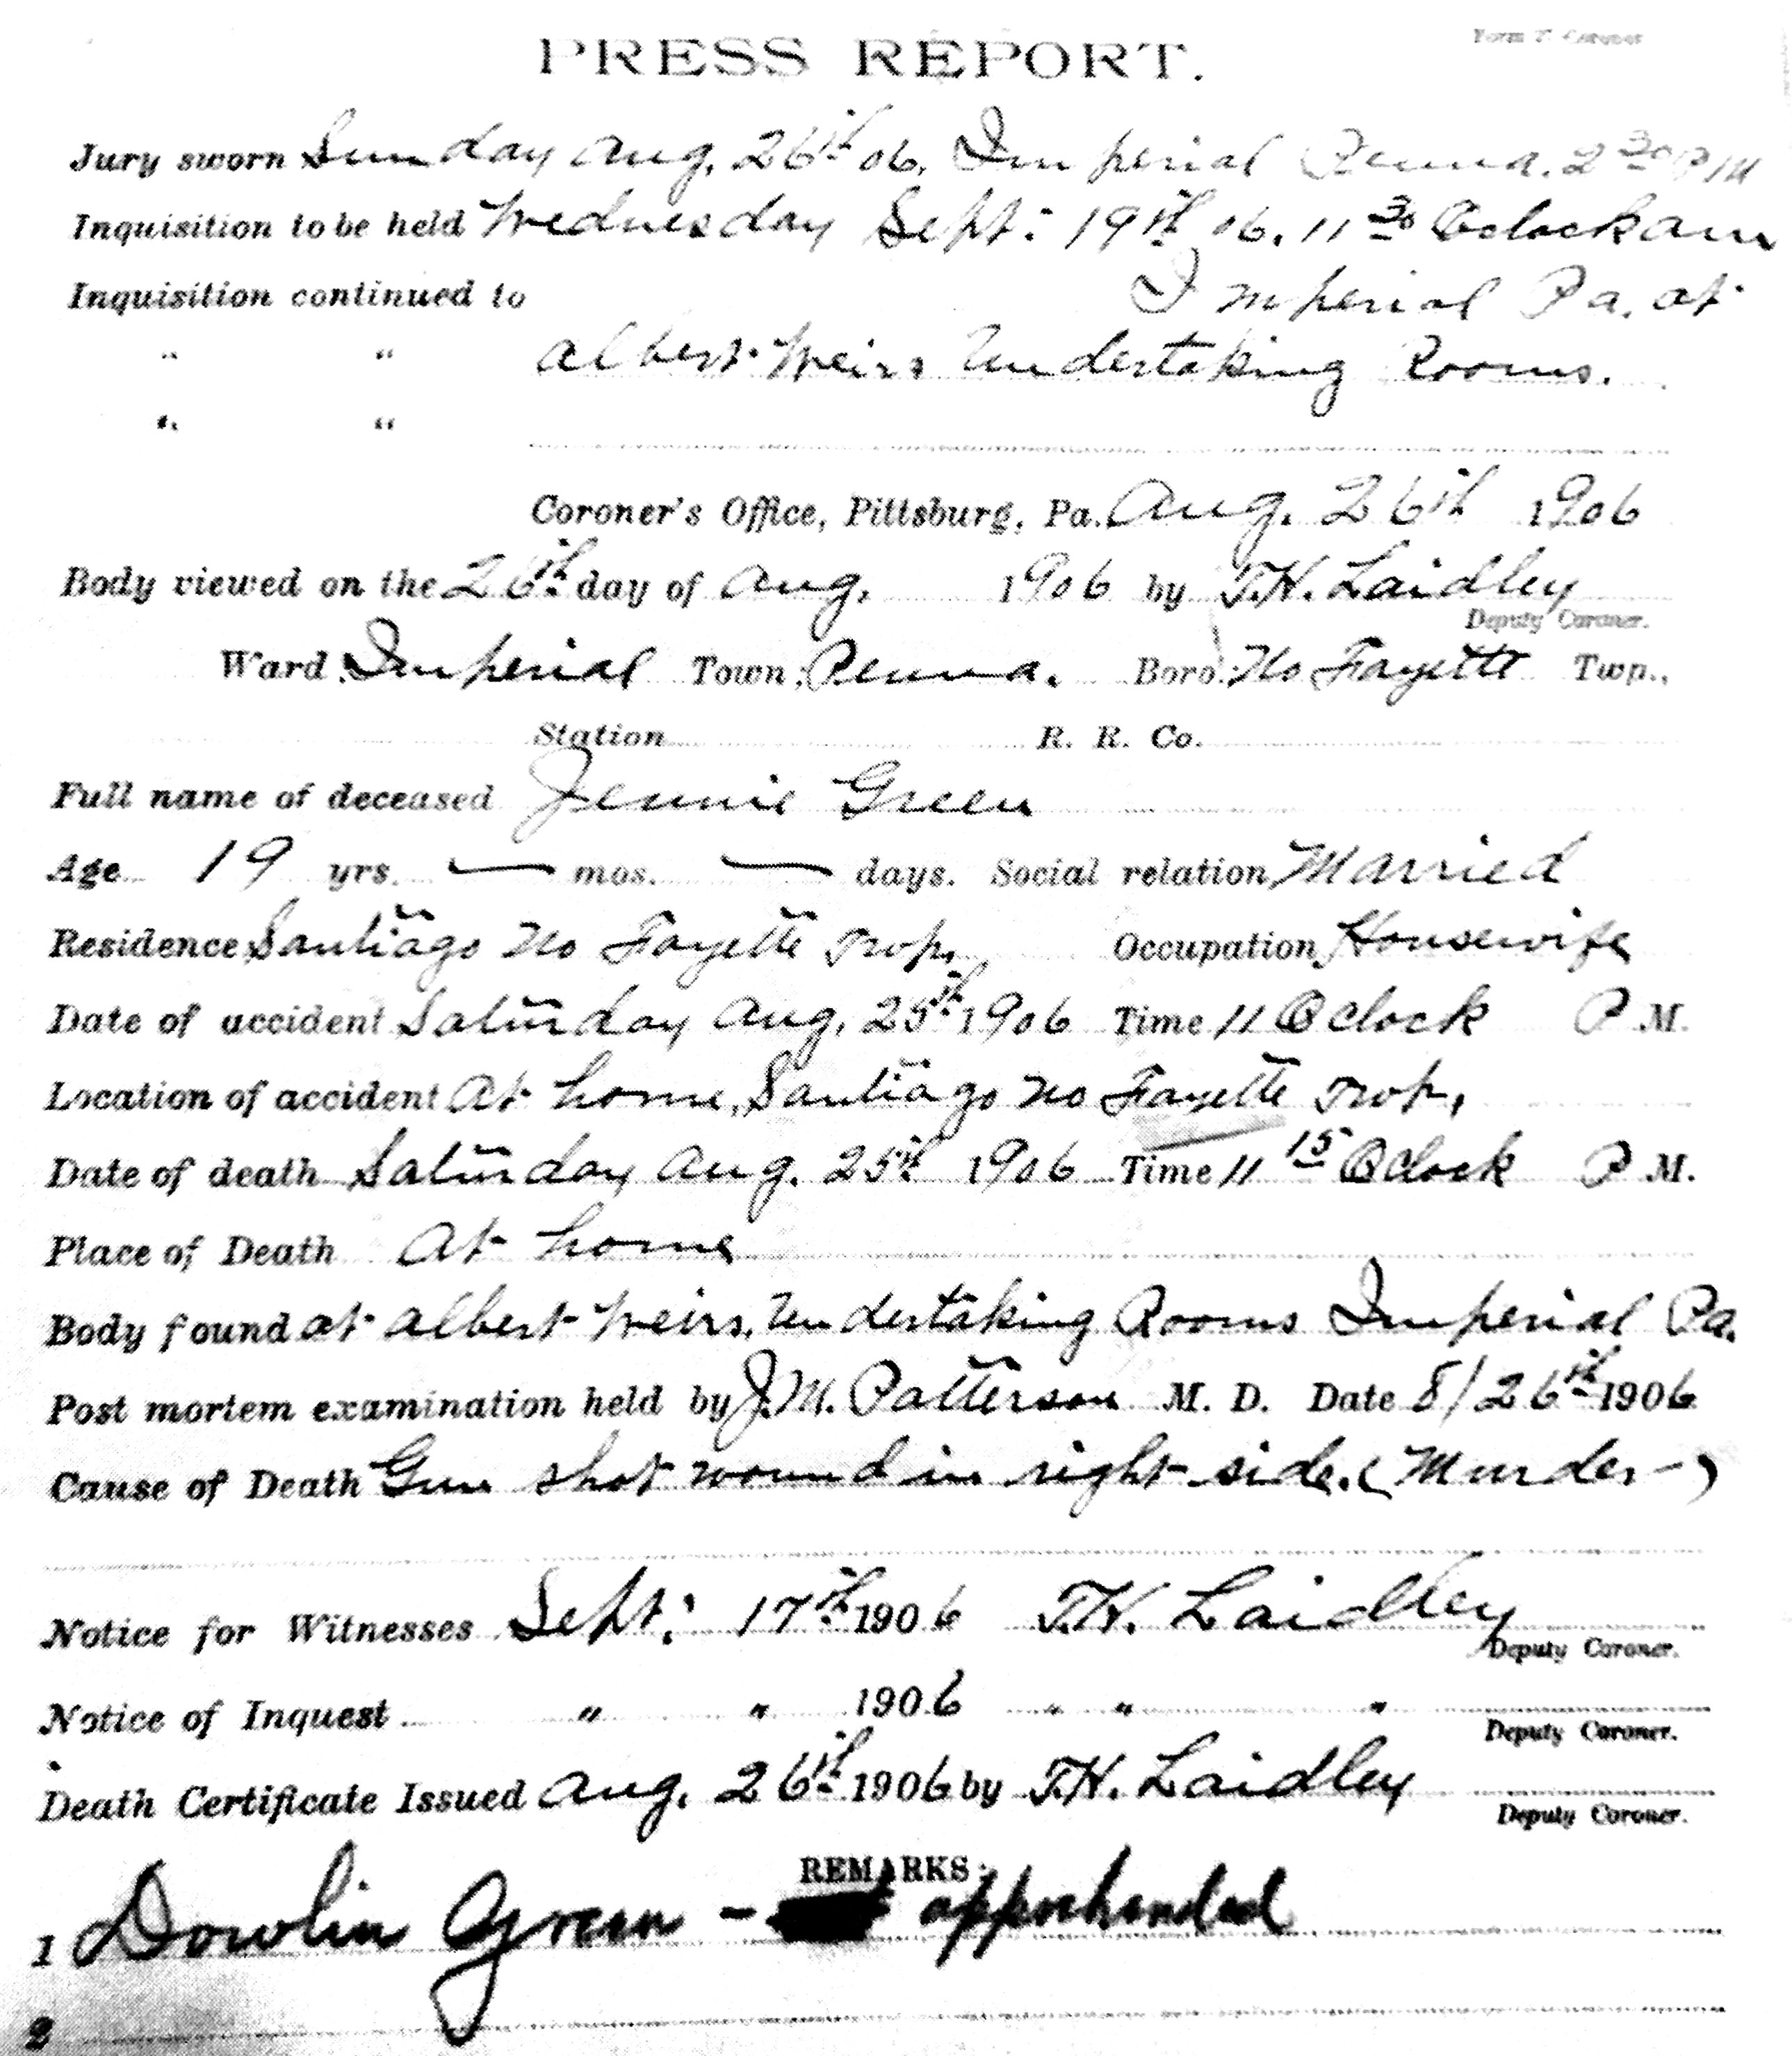 Form 7 Coroner
PRESS REPORT.
Jury sworn Sunday Aug. 26th 06. Imperial Penna. 2 30 PM
Inquisition to be held Wednesday Sept: 19th 06. 11 30 Oclock am
Inquisition continued to Imperial Pa. at
" " Albert Weirs Undertaking Rooms.
" "
Coroner's Office, Pittsburg, Pa. Aug. 26th 1906
Body viewed on the 26th day of Aug. 1906 by T.H. Laidley
Deputy Coroner.
Ward, Imperial Town, Penna. Boro. No Fayette Twp.,
Station R. R. Co.
Full name of deceased Jennie Green
Age 19 yrs. — mos. — days. Social relation, Married
Residence, Santiago No Fayette Twp, Occupation, Housewife
Date of accident Saturday Aug. 25th 1906 Time 11 Oclock P M.
Location of accident At home, Santiago No Fayette Twp,
Date of death Saturday Aug. 25th 1906 Time 11 15 Oclock P M.
Place of Death At home
Body found at Albert Weirs, Undertaking Rooms Imperial Pa.
Post mortem examination held by J.M. Patterson M. D. Date 8/26th 1906
Cause of Death Gun shot wound in right side. (Murder-)
Notice for Witnesses Sept: 17th 1906 T.H. Laidley
Deputy Coroner.
Notice of Inquest " " 1906 " " "
Deputy Coroner.
Death Certificate Issued Aug. 26th 1906 by T.H. Laidley
Deputy Coroner.
REMARKS:
1 Dowlin Green - apprehended
2